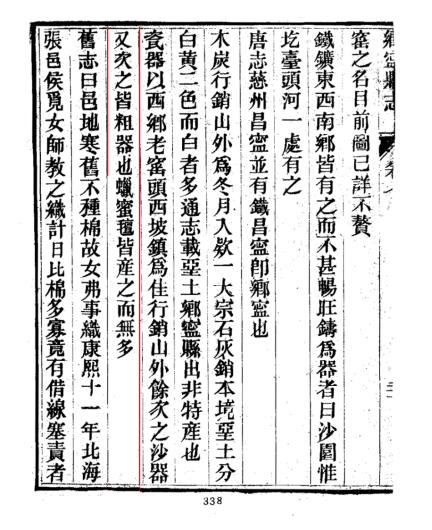 鄉寧縣志 卷七
窰之名目前圖已詳不贅
鐵鑛東西南鄉皆有之而不甚暢旺鑄爲器者曰沙圍惟
圪臺頭河一處有之
唐志慈州昌寧並有鐵昌寧即鄉寧也
木炭行銷山外爲冬月入欵一大宗石灰銷本境堊土分
白黄二色而白者多通志載堊土鄉寧縣出非特産也
瓷器以西鄉老窰頭西坡鎮爲佳行銷山外餘次之沙器
又次之皆粗器也蠟蜜氊皆産之而無多
舊志曰邑地寒舊不種棉故女弗事織康熙十一年北海
張邑侯覓女師教之織計日比棉多寡竟有借線塞責者
338